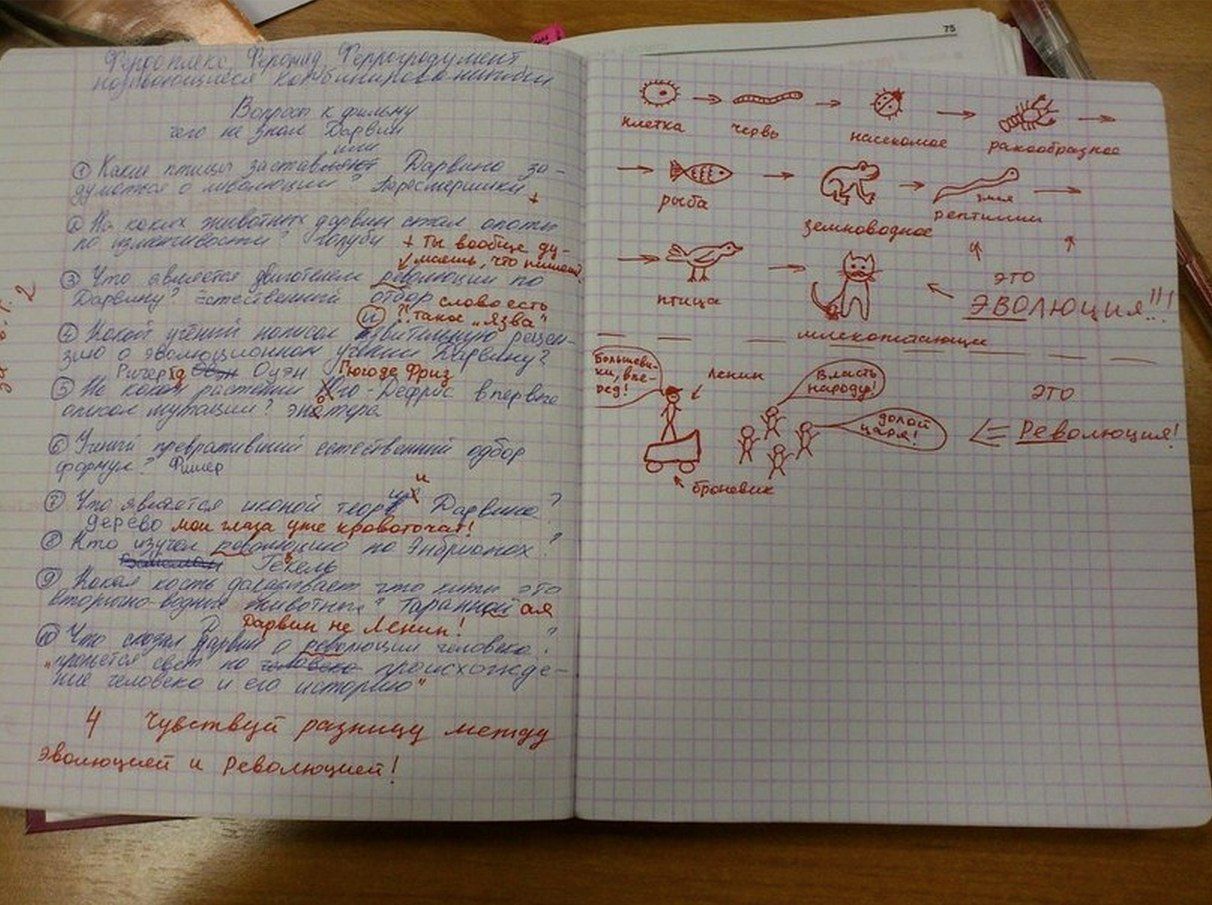 75
Ферроплекс, Ферамид, Феррогродумент
называющиеся комбинирова
Вопросы к фильму
чего не знал Дарвин
или
① Какие птицы заставляют Дарвина за-
думатся о революции?
+
② На каких животных дарвин ставил опыты
по изменчивости? голуби + Ты вообще, ду-
маешь, что пишешь?
③ Что является двигателем революции по
Дарвину? естественный отбор слово есть
и !! такое „язва"
④ Какой учёный написал язвительную рецен-
зию о эволюционном учении Дарвину?
Ричард Оуэн Гюгоде Фриз
⑤ На каком растении Хюго-Дефрис впервые
описал мутации? энотера
⑥ Учёный превративший естественный одбор
формулу? Фишер
⑦ Что является иконой теории Дарвина?
дерево мои глаза уже кровоточат!
⑧ Кто изучал революцию по Энбрионах?
Геккель
⑨ Какая кость доказывает что киты это
вторично-водные животные? таранной ая
Дарвин не Ленин!
⑩ Что сказал Дарвин о революции человека?
„прольётся свет на человека происхожде-
ние человека и его историю"
4 Чувствуй разницу между
эволюцией и революцией!
клетка червь насекомое ракообразное
рыба земноводное змея рептилии
птица
млекопитающие
это
ЭВОЛЮЦИЯ!!!
Большеви-
ки, впе-
ред!
Ленин
Власть
народу!
долой
царя!
броневик
это
РЕВОЛЮЦИЯ!